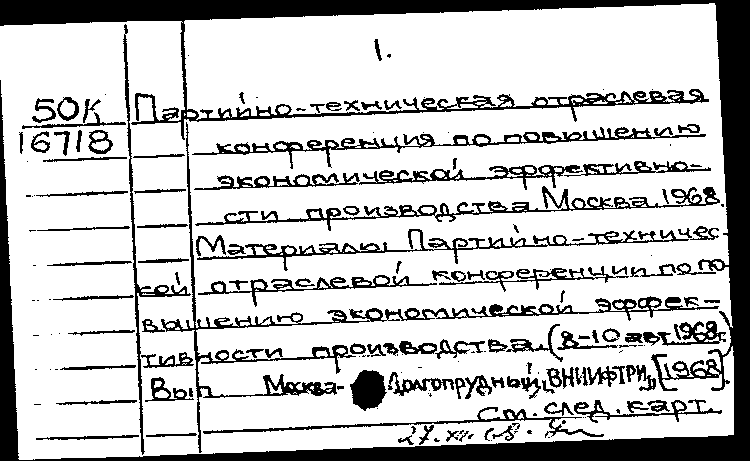 1.
50К
16718
Партийно-техническая отраслевая
конференция по повышению
экономической эффективно-
сти производства. Москва. 1968.
Материалы Партийно-техничес-
кой отраслевой конференции по по-
вышению экономической эффек-
тивности производства. (8-10 авг. 1968г.)
Вып. Москва- Долгопрудный, "ВНИИФТРИ", [1968].
См. след. карт.
27.XII.68.